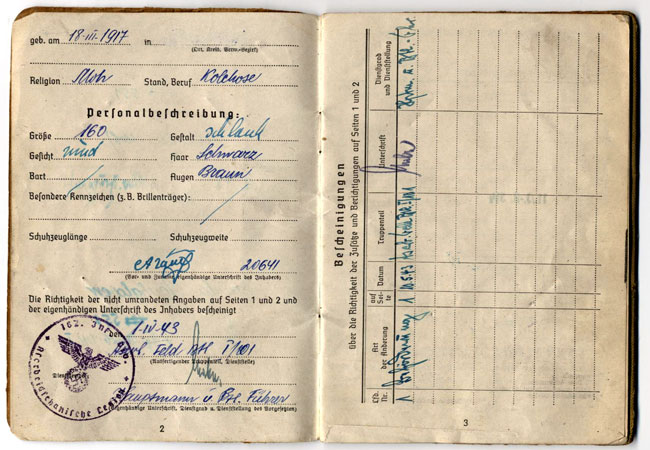 geb. am 18-III-1917 in
(Ort, Kreis, Verw.-Bezirk)
Religion Moh. Stand, Beruf Kolchose
Personalbeschreibung:
Größe 160 Gestalt schlank
Gesicht rund Haar Schwarz
Bart / Augen Braun
Besondere Kennzeichen (z. B. Brillenträger):
Schuhzeuglänge Schuhzeugweite
20641
(Vor- und Zuname, eigenhändige Unterschrift des Inhabers)
Die Richtigkeit der nicht umrandeten Angaben auf Seiten 1 und 2 und
der eigenhändigen Unterschrift des Inhabers bescheinigt
1-IV-43
Feld I/101
(Ausfertigender Truppenteil, Dienststelle)
Hauptmann u. Btl. Führer
(Eigenhändige Unterschrift, Dienstgrad u. Dienststellung des Vorgesetzten)
162. Inf.
Aserbeidschanische Legion
2
Bescheinigungen
über die Richtigkeit der Zusätze und Berichtigungen auf Seiten 1 und 2
Lfd. Nr.
Art der Änderung
auf Seite
Datum
Truppenteil
Unterschrift
Dienstgrad und Dienststellung
1 Beförderung 1
3